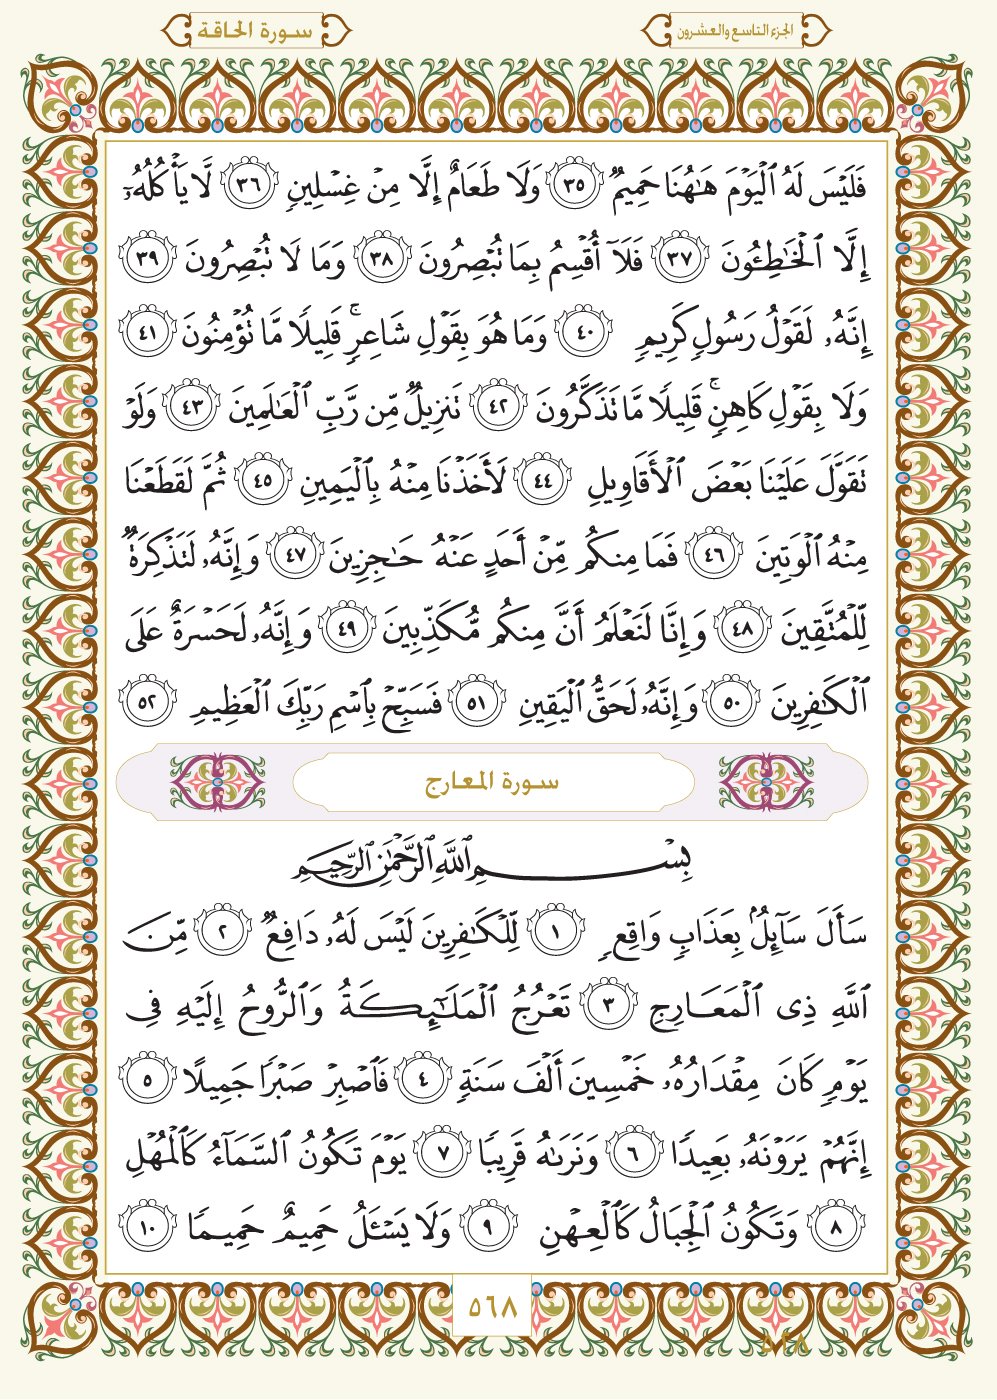 الجزء التاسع والعشرون
سورة الحاقة
فَلَيْسَ لَهُ ٱلْيَوْمَ هَٰهُنَا حَمِيمٌ ٣٥ وَلَا طَعَامٌ إِلَّا مِنْ غِسْلِينٍ ٣٦ لَّا يَأْكُلُهُۥٓ
إِلَّا ٱلْخَٰطِـُٔونَ ٣٧ فَلَآ أُقْسِمُ بِمَا تُبْصِرُونَ ٣٨ وَمَا لَا تُبْصِرُونَ ٣٩
إِنَّهُۥ لَقَوْلُ رَسُولٍ كَرِيمٍ ٤٠ وَمَا هُوَ بِقَوْلِ شَاعِرٍ ۚ قَلِيلًا مَّا تُؤْمِنُونَ ٤١
وَلَا بِقَوْلِ كَاهِنٍ ۚ قَلِيلًا مَّا تَذَكَّرُونَ ٤٢ تَنزِيلٌ مِّن رَّبِّ ٱلْعَٰلَمِينَ ٤٣ وَلَوْ
تَقَوَّلَ عَلَيْنَا بَعْضَ ٱلْأَقَاوِيلِ ٤٤ لَأَخَذْنَا مِنْهُ بِٱلْيَمِينِ ٤٥ ثُمَّ لَقَطَعْنَا
مِنْهُ ٱلْوَتِينَ ٤٦ فَمَا مِنكُم مِّنْ أَحَدٍ عَنْهُ حَٰجِزِينَ ٤٧ وَإِنَّهُۥ لَتَذْكِرَةٌ
لِّلْمُتَّقِينَ ٤٨ وَإِنَّا لَنَعْلَمُ أَنَّ مِنكُم مُّكَذِّبِينَ ٤٩ وَإِنَّهُۥ لَحَسْرَةٌ عَلَى
ٱلْكَٰفِرِينَ ٥٠ وَإِنَّهُۥ لَحَقُّ ٱلْيَقِينِ ٥١ فَسَبِّحْ بِٱسْمِ رَبِّكَ ٱلْعَظِيمِ ٥٢
سورة المعارج
بِسْمِ ٱللَّهِ ٱلرَّحْمَٰنِ ٱلرَّحِيمِ
سَأَلَ سَآئِلٌۢ بِعَذَابٍ وَاقِعٍ ١ لِّلْكَٰفِرِينَ لَيْسَ لَهُۥ دَافِعٌ ٢ مِّنَ
ٱللَّهِ ذِى ٱلْمَعَارِجِ ٣ تَعْرُجُ ٱلْمَلَٰٓئِكَةُ وَٱلرُّوحُ إِلَيْهِ فِى
يَوْمٍ كَانَ مِقْدَارُهُۥ خَمْسِينَ أَلْفَ سَنَةٍ ٤ فَٱصْبِرْ صَبْرًا جَمِيلًا ٥
إِنَّهُمْ يَرَوْنَهُۥ بَعِيدًا ٦ وَنَرَىٰهُ قَرِيبًا ٧ يَوْمَ تَكُونُ ٱلسَّمَآءُ كَٱلْمُهْلِ
٨ وَتَكُونُ ٱلْجِبَالُ كَٱلْعِهْنِ ٩ وَلَا يَسْـَٔلُ حَمِيمٌ حَمِيمًا ١٠
٥٦٨
٥٦٨